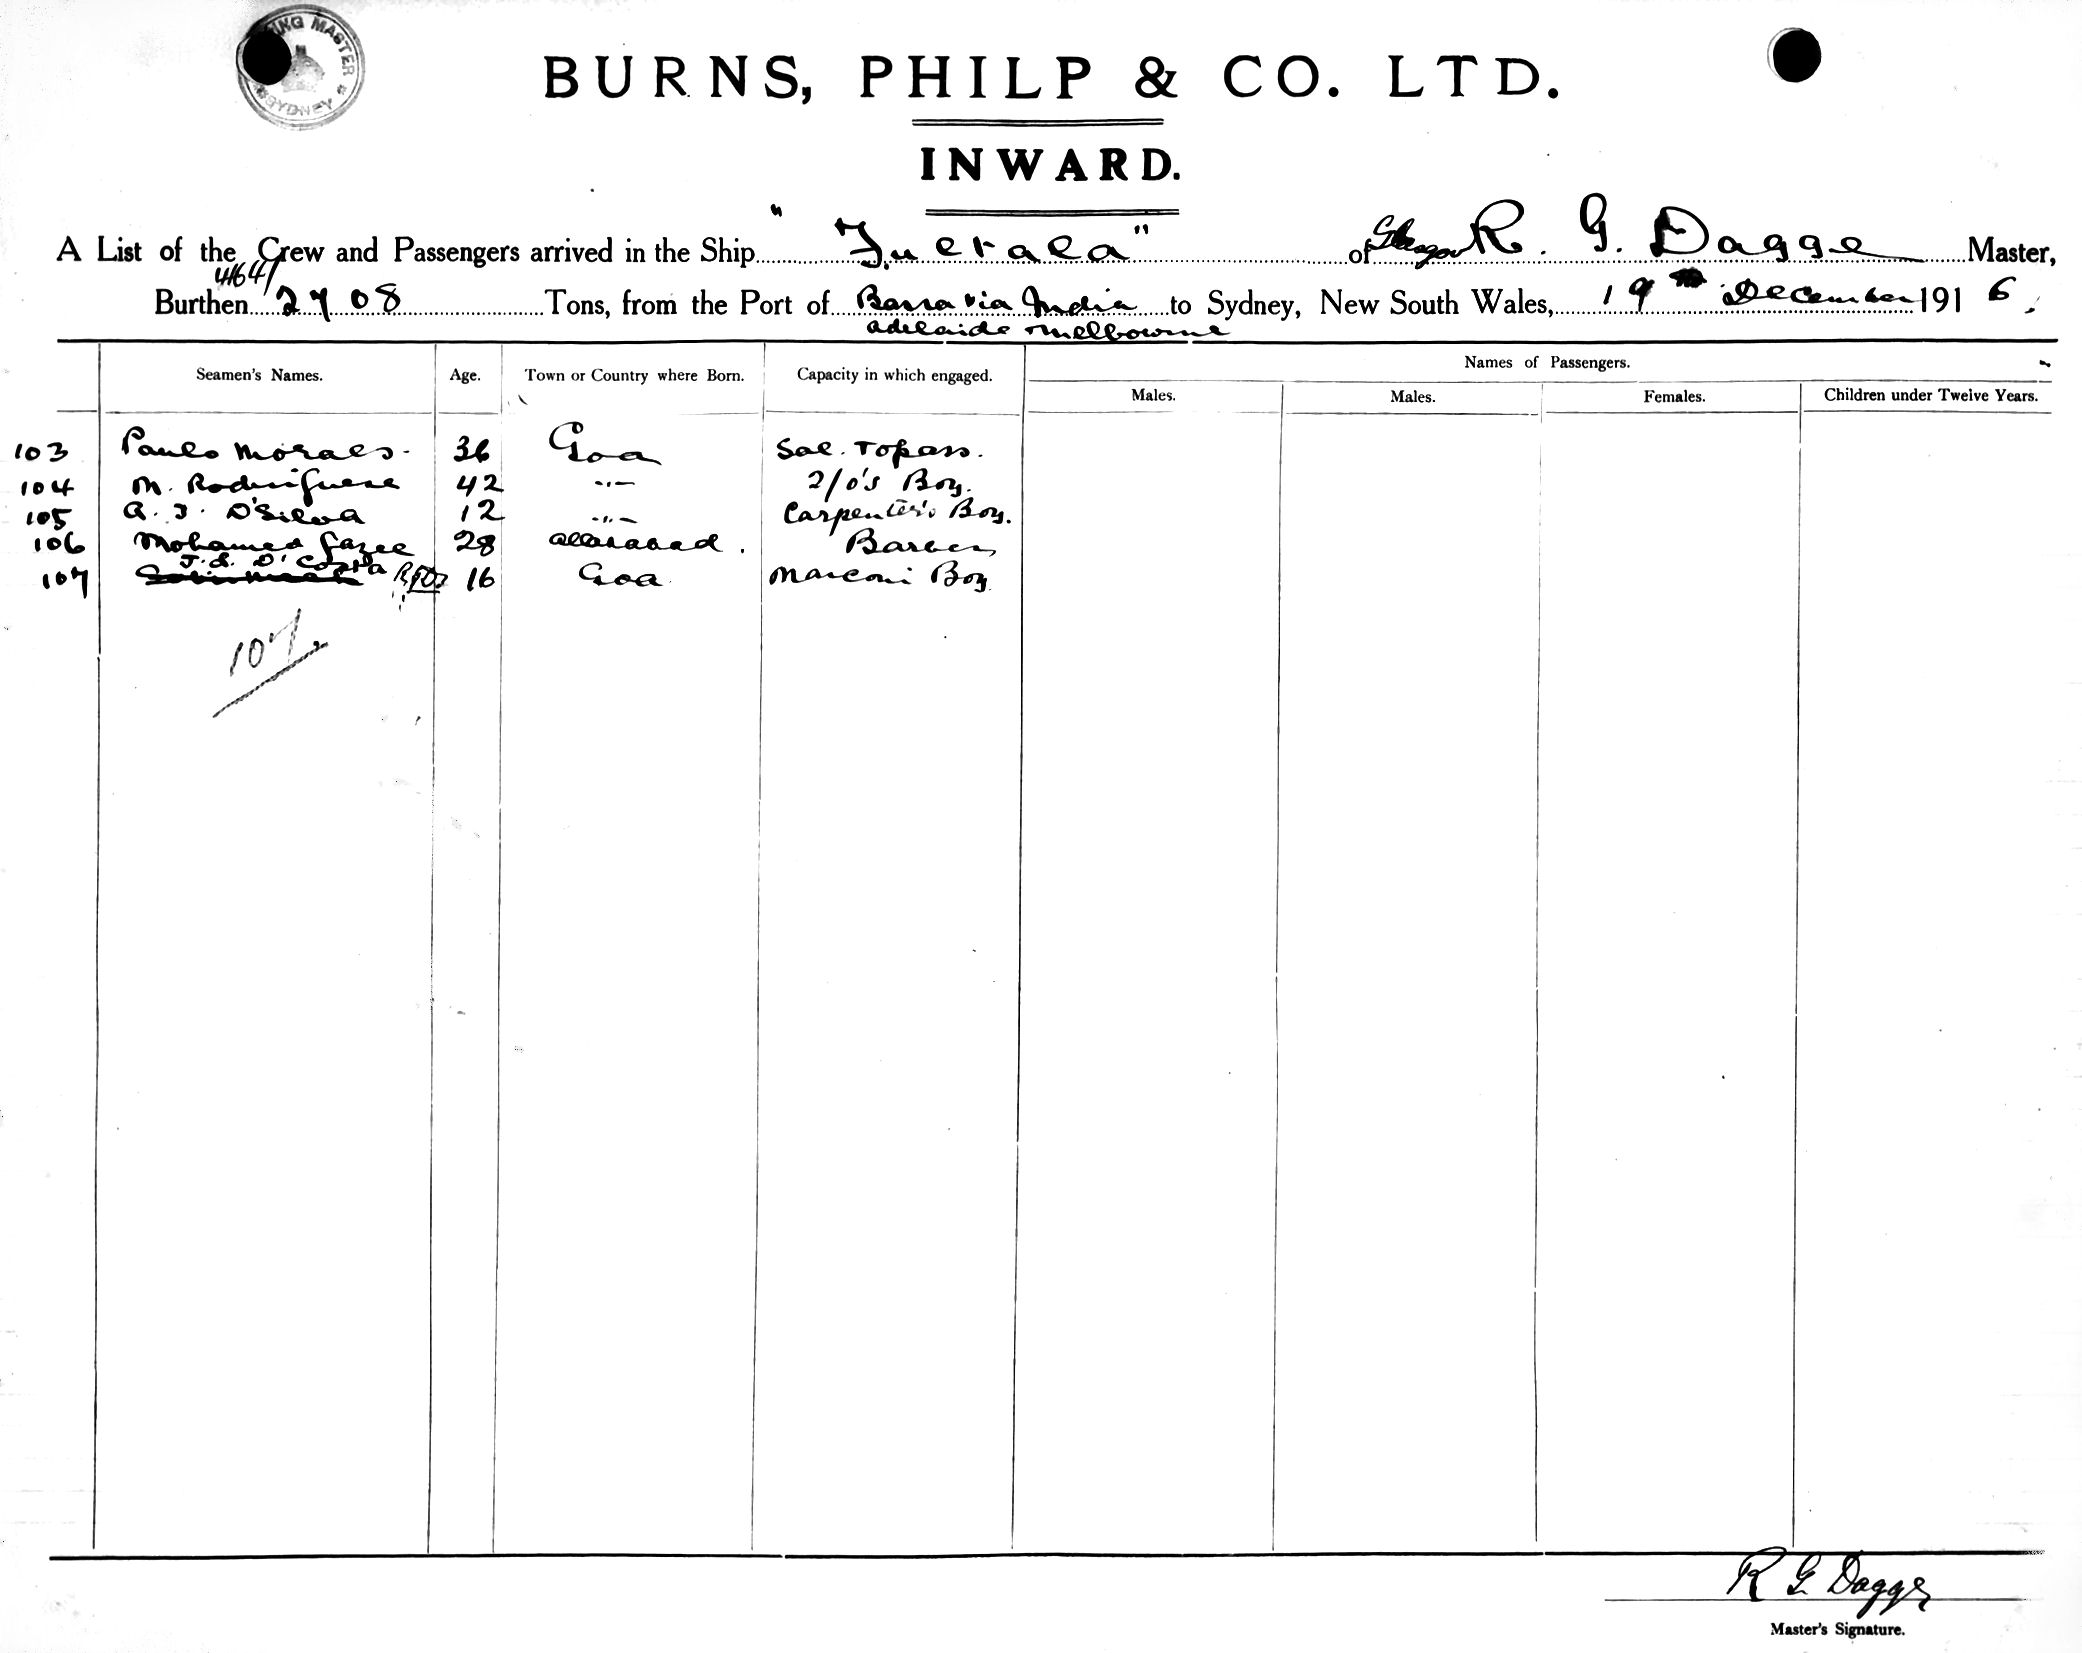 SHIPPING MASTER
SYDNEY
BURNS, PHILP & CO. LTD.
INWARD.
A List of the Crew and Passengers arrived in the Ship "Fultala" of Glasgow R. G. Dagge Master,
4164/
Burthen 2708 Tons, from the Port of Basra via India to Sydney, New South Wales, 19th December 1916.
Adelaide Melbourne
Names of Passengers.
Seamen's Names. Age. Town or Country where Born. Capacity in which engaged.
Males. Males. Females. Children under Twelve Years.
103 Paulo Moraes. 36 Goa Sal. Topass.
104 M. Rodriguese 42 -"- 2/0's Boy.
105 A. J. D'Silva 12 -"- Carpenter's Boy.
106 Mohamed 28 Barber
J. S. D'Costa
107 16 Goa Marconi Boy
107
R G Dagge
Master's Signature.